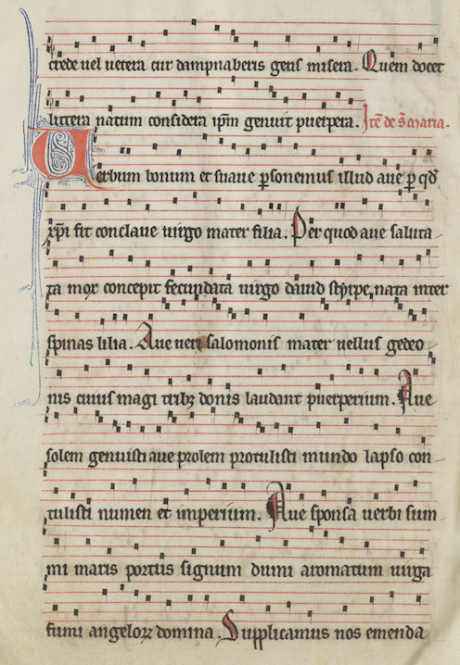 crede uel uetera cur dampnaberis gens misera. Quem docet
littera natum considera ip̄m genuit puerpera. Itē de s̄ maria.
Uerbum bonum et suaue ꝑsonemus illud aue ꝑ qd̄
xp̄i fit conclaue uirgo mater filia. Per quod aue saluta
ta mox concepit fecundata uirgo dauid styrpe nata inter
spinas lilia. Aue ueri salomonis mater uellus gedeo
nis cuius magi tribꝫ donis laudant puerperium. Aue
solem genuisti aue prolem protulisti mundo lapso con
tulisti numen et imperium. Aue sponsa uerbi sum
mi maris portus signum dumi aromatum uirga
fumi angeloꝝ domina. Supplicamus nos emenda